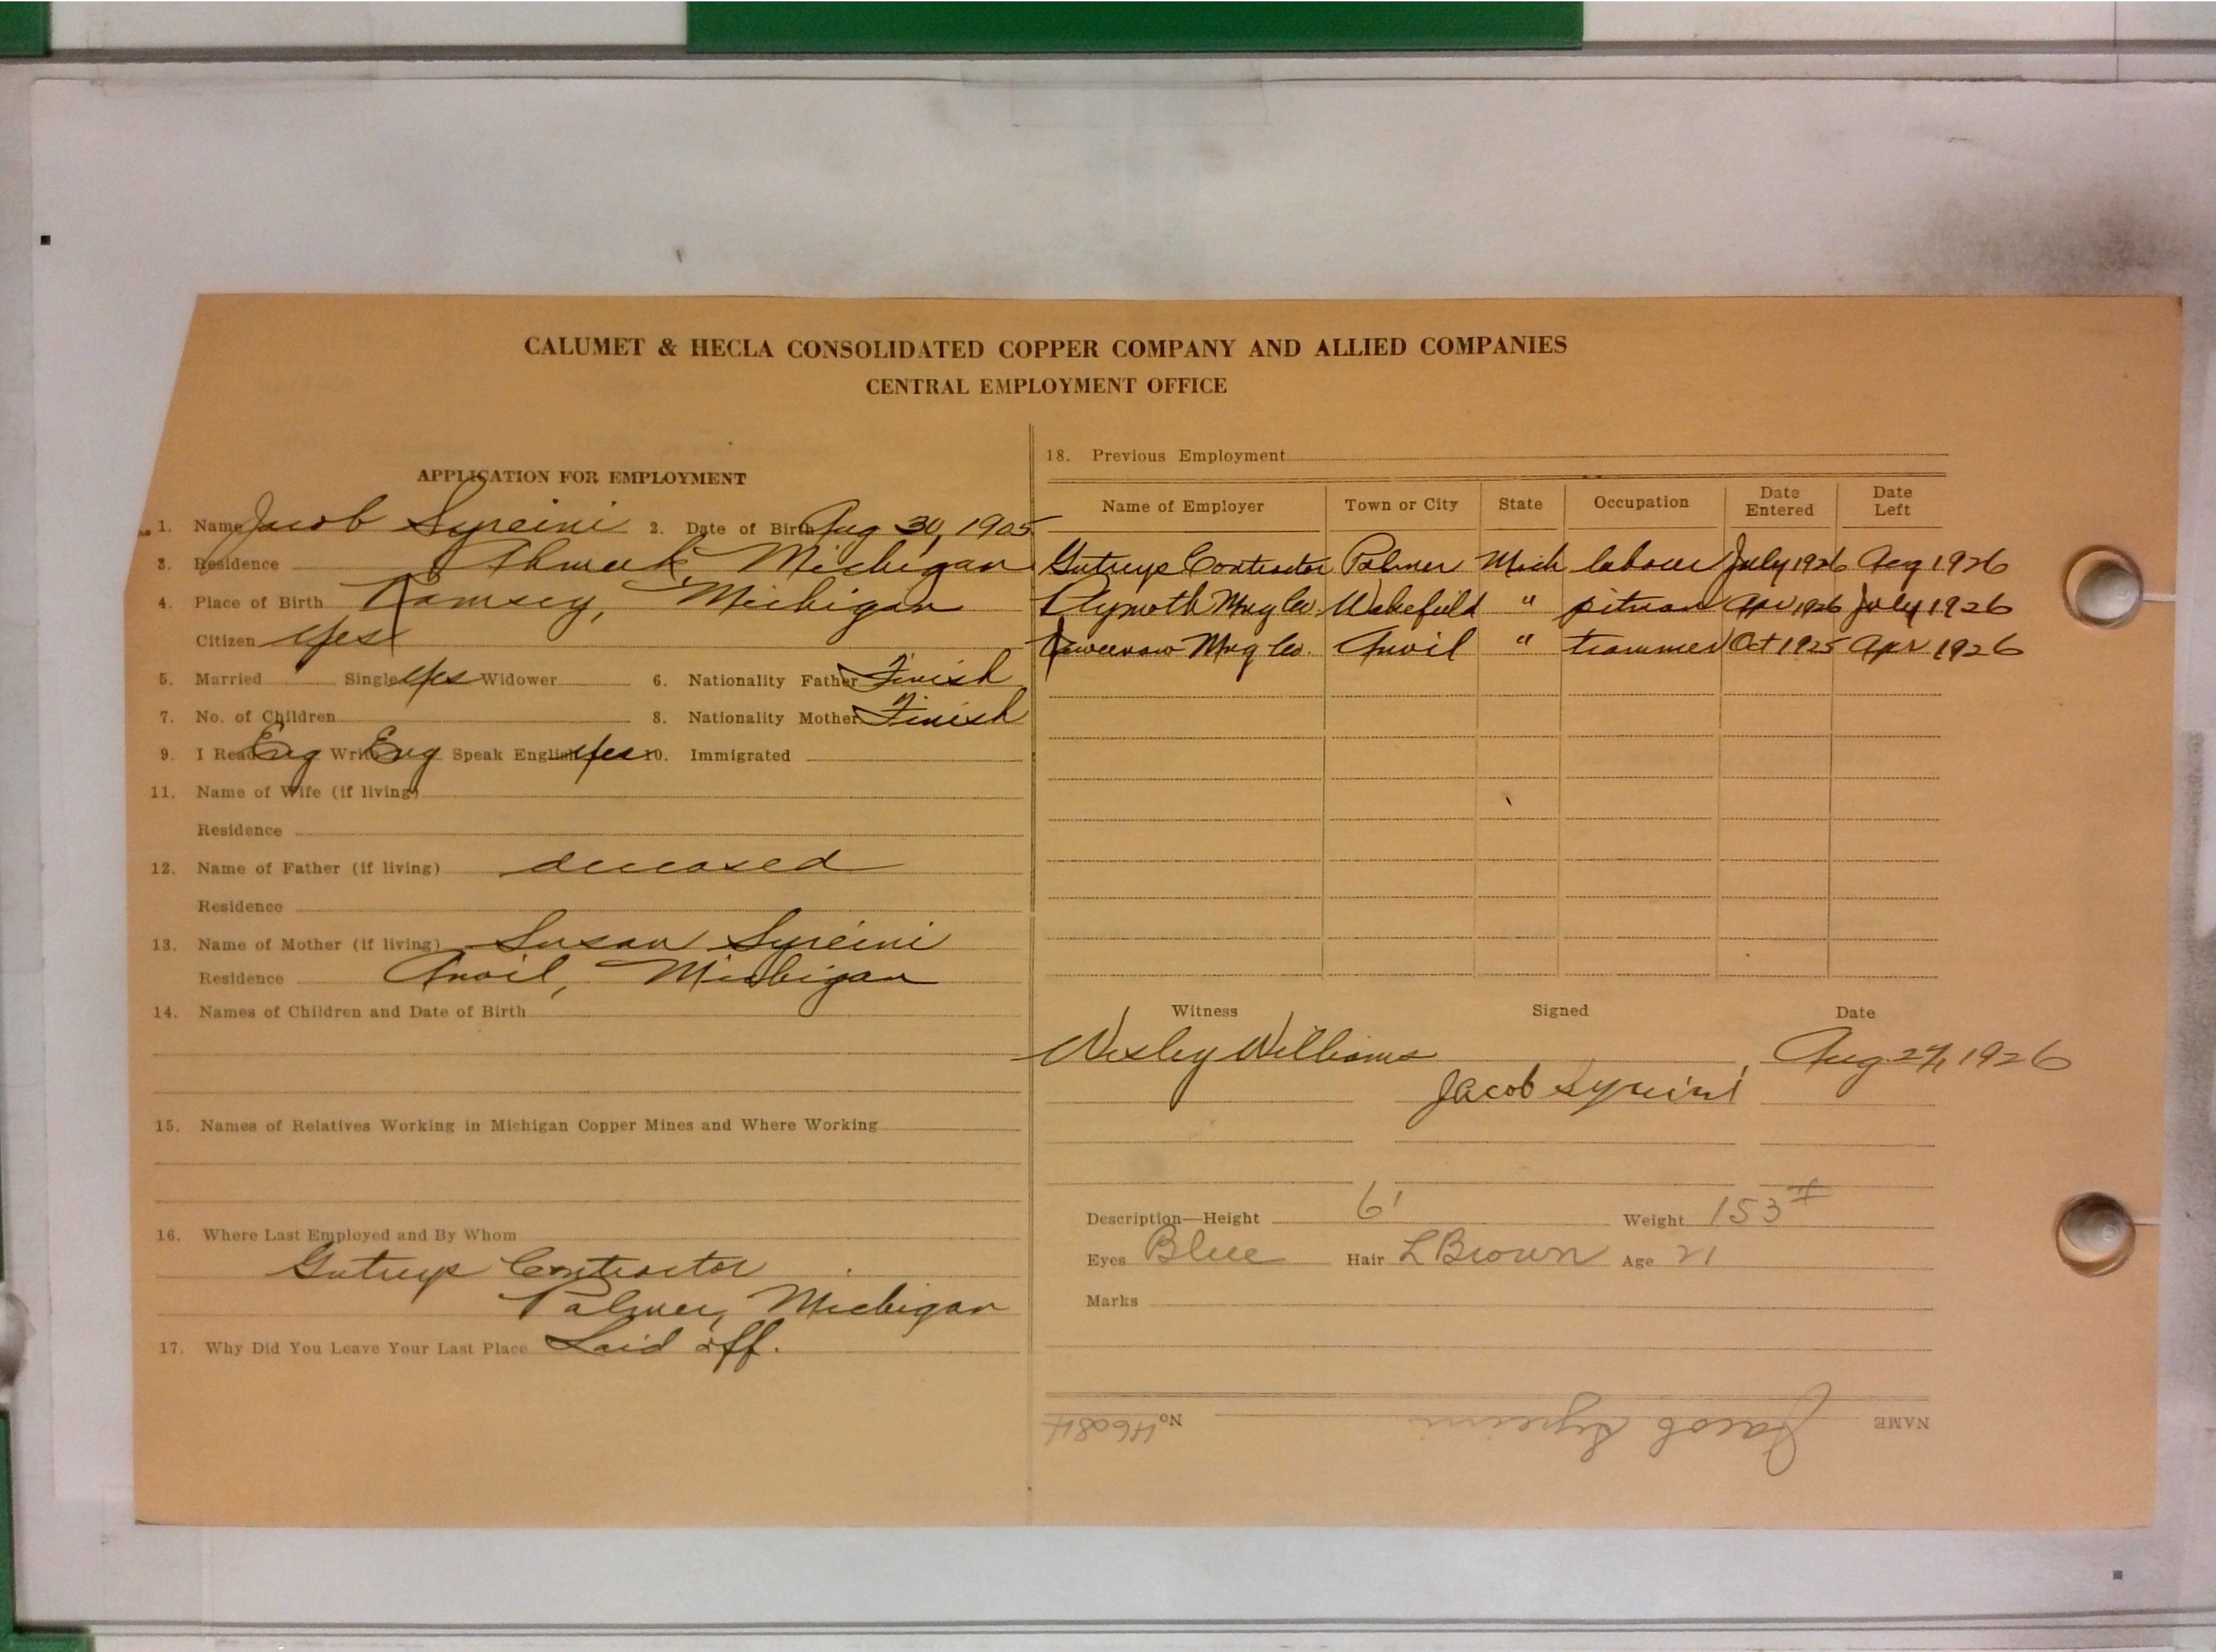 CALUMET & HECLA CONSOLIDATED COPPER COMPANY AND ALLIED COMPANIES
CENTRAL EMPLOYMENT OFFICE
APPLICATION FOR EMPLOYMENT
1. Name Jacob Syreini 2. Date of Birth Aug 30, 1905
3. Residence Ahmeek Michigan
4. Place of Birth Ramsey, Michigan
Citizen Yes
5. Married Single Yes Widower 6. Nationality Father Finish
7. No. of Children 8. Nationality Mother Finish
9. I Read Eng Write Eng Speak English Yes 10. Immigrated
11. Name of Wife (if living)
Residence
12. Name of Father (if living) deceased
Residence
13. Name of Mother (if living) Susan Syreini
Residence Anvil, Michigan
14. Names of Children and Date of Birth
15. Names of Relatives Working in Michigan Copper Mines and Where Working
16. Where Last Employed and By Whom
Contractor
Palmer, Michigan
17. Why Did You Leave Your Last Place Laid off.
18. Previous Employment
Name of Employer Town or City State Occupation Date Entered Date Left
Contractor Palmer Mich labour July 1926 Aug 1926
Plymoth Mng Co. Wakefield " pitman Apr 1926 July 1926
Keweenaw Mng Co. Anvil " trammer Oct 1925 Apr 1926
Witness Signed Date
Wesley Williams Aug 27, 1926
Jacob Syreini
Description—Height 6' Weight 153#
Eyes Blue Hair L Brown Age 21
Marks
NAME Jacob Syreini No.